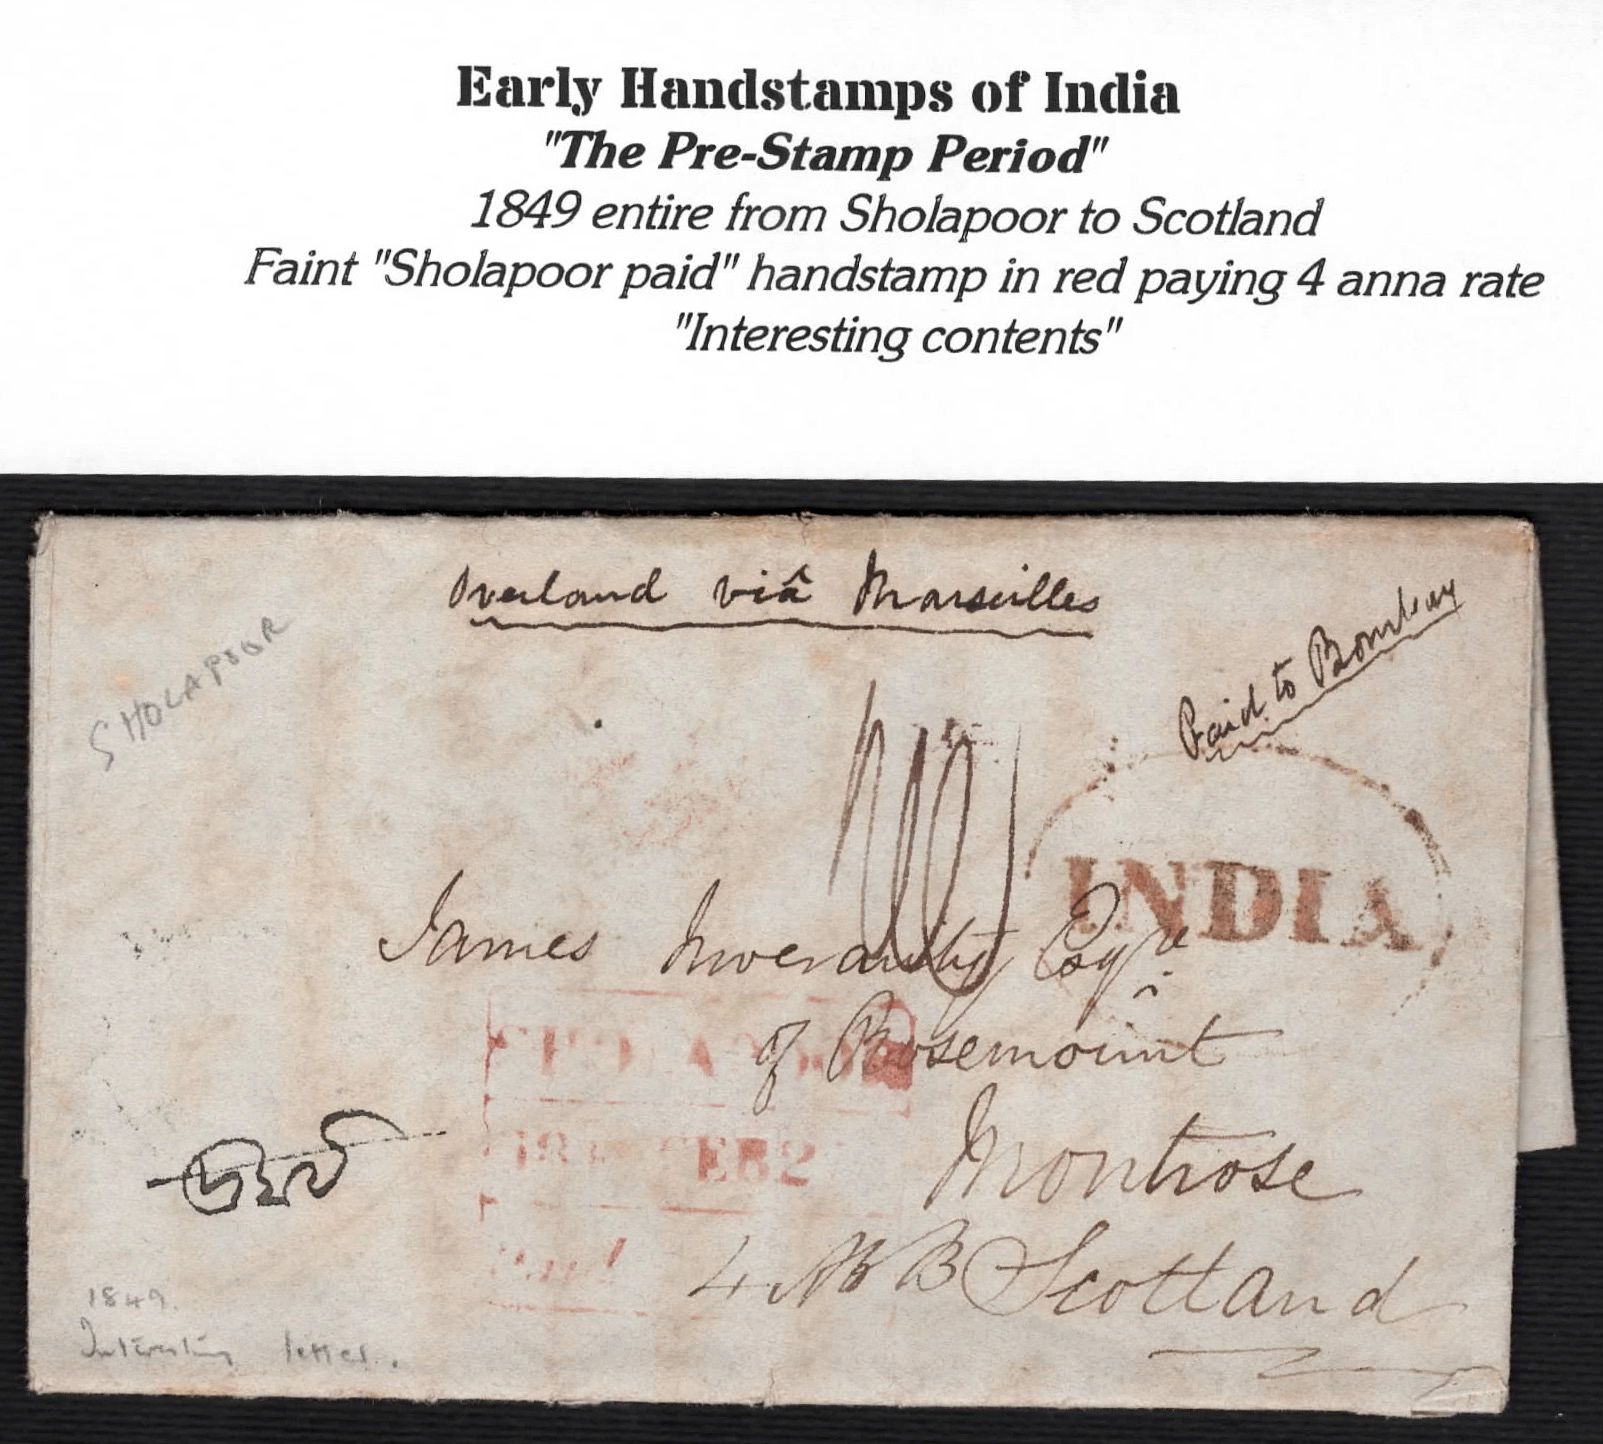 Early Handstamps of India
"The Pre-Stamp Period"
1849 entire from Sholapoor to Scotland
Faint "Sholapoor paid" handstamp in red paying 4 anna rate
"Interesting contents"
Overland viâ Marseilles
Paid to Bombay
SHOLAPOOR
INDIA
James Inverarity Esqre
of Rosemount
SHOLAPOOR
Montrose
FEB 2
Paid
4
N B Scotland
1849.
Interesting letter.